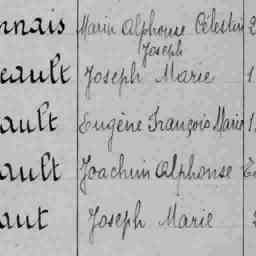 nnais Marin Alphonse Célestin 2
Joseph
eault Joseph Marie 1
ault Eugène François Marie 1
ault Joachim Alphonse
aut Joseph Marie